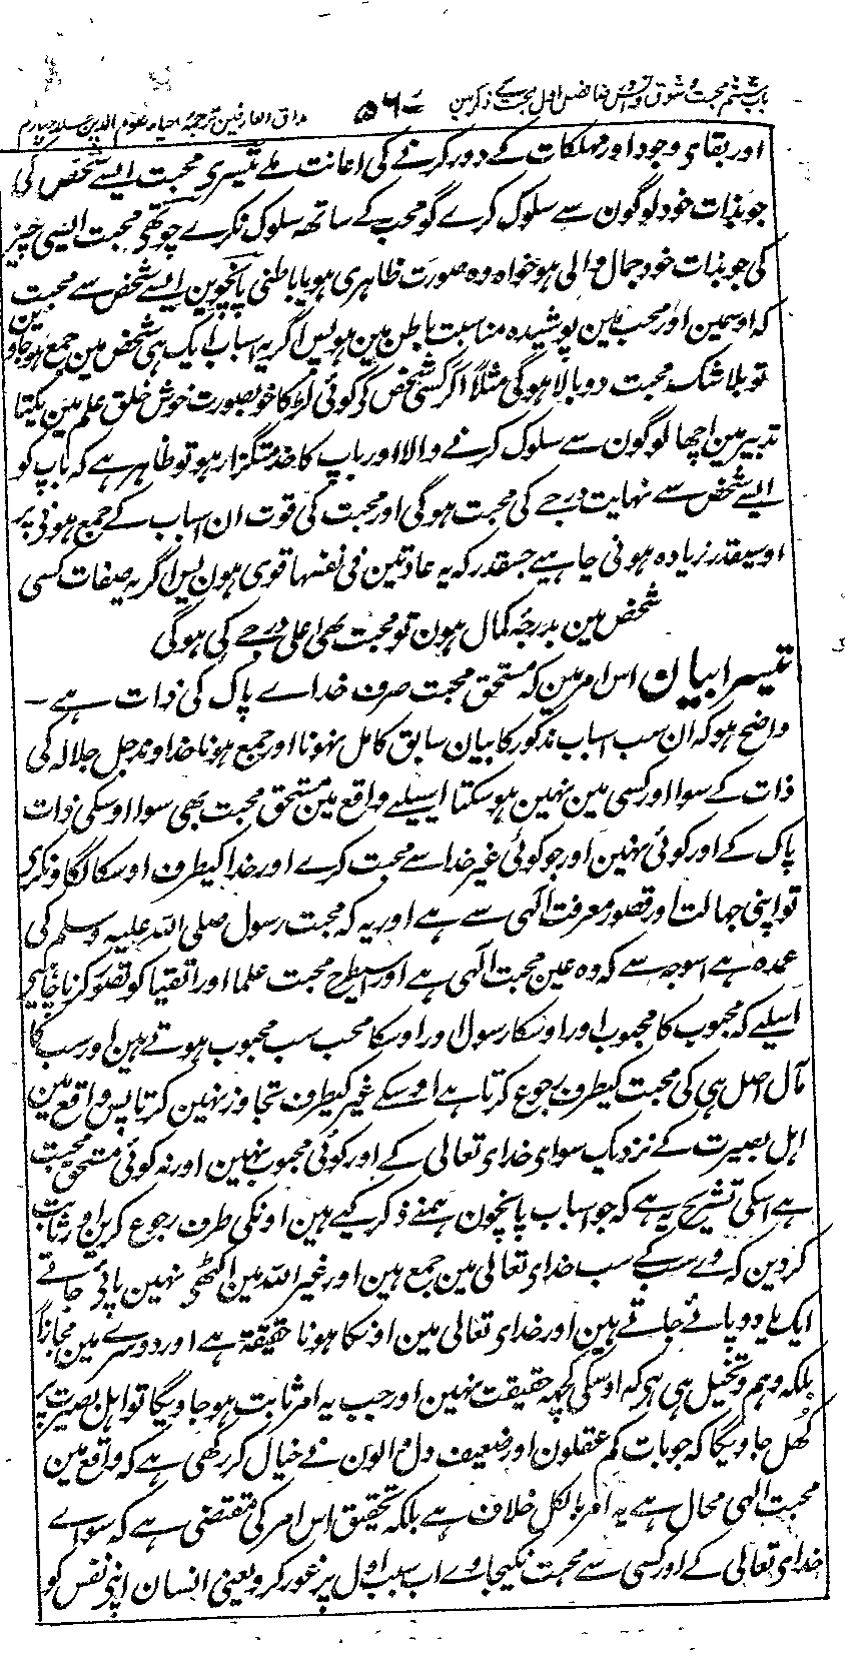 باب ششم محبت و شوق و انس رضا فصل اول محبت کے ذکر مین ۵۶۰ مذاق العارفین ترجمہ احیاء علوم الدین جلد چہارم
اور بقای وجود اور مہلکات کے دور کرنے کی اعانت ملے تیسری محبت ایسے شخص کی
جو بذات خود لوگون سے سلوک کرے گو محب کے ساتھ سلوک نکرے چوتھی محبت ایسی چیز
کی جو بذات خود جمال والی ہو خواہ وہ صورت ظاہری ہو یا باطنی پانچوین ایسے شخص سے محبت
کہ اوسمین اور محب مین پوشیدہ مناسبت باطن مین ہو پس اگر یہ اسباب ایک ہی شخص مین جمع ہو جاوین
تو بلا شک محبت دوبالا ہوگی مثلاً اگر کسی شخص کی کوئی لڑکا خوبصورت خوش خلق علم مین یکتا
تدبیر مین اچھا لوگون سے سلوک کرنے والا اور باپ کا خدمتگزار ہو تو ظاہر ہے کہ باپ کو
ایسے شخص سے نہایت درجے کی محبت ہوگی اور محبت کی قوت ان اسباب کے جمع ہونے پر
اوسیقدر زیادہ ہونی چاہیے جسقدر کہ یہ عادتین فی نفسہا قوی ہون پس اگر یہ صفات کسی
شخص مین بدرجۂ کمال ہون تو محبت بھی اعلی درجے کی ہوگی
تیسرا بیان اس امر مین کہ مستحق محبت صرف خداے پاک کی ذات ہے ۔
واضح ہو کہ ان سب اسباب مذکور کا بیان سابق کامل ہونا اور جمع ہونا خداوند جل جلالہ کی
ذات کے سوا اور کسی مین نہین ہو سکتا ایسلیے واقع مین مستحق محبت بھی سوا اوسکی ذات
پاک کے اور کوئی نہین اور جو کوئی غیر خدا سے محبت کرے اور خدا کیطرف اوسکا لگاؤ نکری
تو اپنی جہالت اور قصور معرفت آلہی سے ہے اور یہ کہ محبت رسول صلی اللہ علیہ وسلم کی
عمدہ ہے اسوجہ سے کہ وہ عین محبت آلہی ہے اور اسیطرح محبت علما اور اتقیا کو تصور کرنا چاہیے
اسلیے کہ محبوب کا محبوب اور اوسکا رسول اور اوسکا محب سب محبوب ہوتے ہین اور سب کا
مآل اصل ہی کی محبت کیطرف رجوع کرتا ہے اوسکے غیر کیطرف تجاوز نہین کرتا پس واقع مین
اہل بصیرت کے نزدیک سوای خدای تعالی کے اور کوئی محبوب نہین اور نہ کوئی مستحق محبت
ہے اسکی تشریح یہ ہے کہ جو اسباب پانچون ہمنے ذکر کیے ہین اونکی طرف رجوع کرین اور ثابت
کردین کہ وے سب کے سب خدای تعالی مین جمع ہین اور غیر اللہ مین اکٹھی نہین پائی جاتے
ایک یا دو پائے جاتے ہین اور خدای تعالی مین اونکا ہونا حقیقۃ ہے اور دوسرے مین مجازاً
بلکہ وہم و تخیل ہی ہی کہ اوسکی کچھہ حقیقت نہین اور جب یہ امر ثابت ہو جاویگا تو اہل بصیرت پر
کھل جاویگا کہ جو بات کم عقلون اور ضعیف دل والون نے خیال کر رکھی ہے کہ واقع مین
محبت الہی محال ہے یہ امر بالکل خلاف ہے بلکہ تحقیق اس امر کی مقتضی ہے کہ سواے
خدای تعالی کے اور کسی سے محبت نکیجاوے اب سبب اول پر غور کرو یعنی انسان اپنی نفس کو